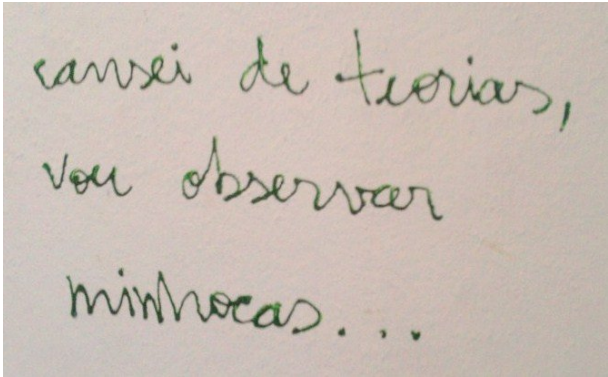 cansei de teorias,
vou observar
minhocas...